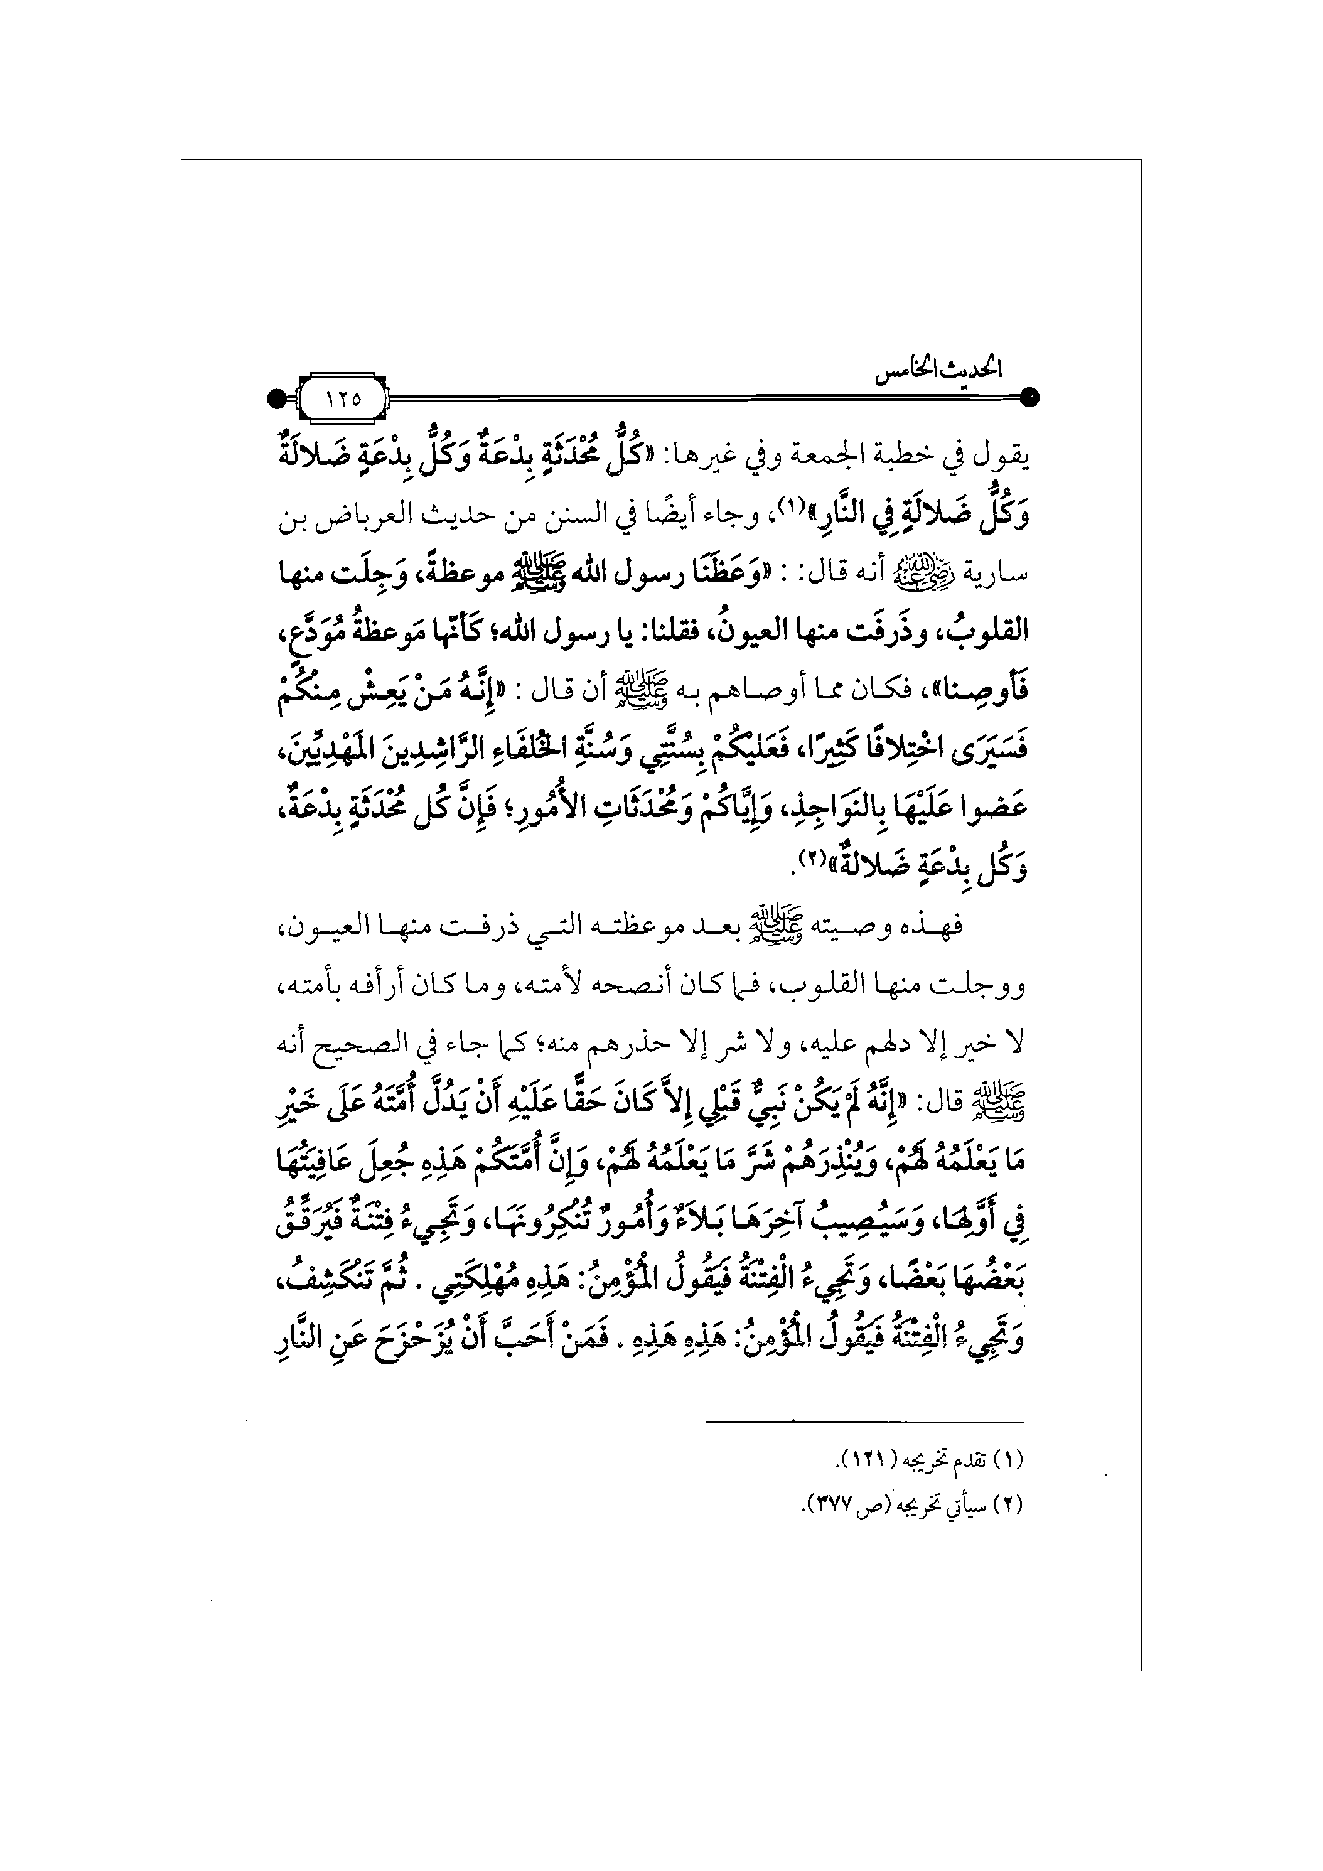 الحديث الخامس
١٢٥
يقول في خطبة الجمعة وفي غيرها: «كُلُّ مُحْدَثَةٍ بِدْعَةٌ وَكُلُّ بِدْعَةٍ ضَلالَةٌ
وَكُلُّ ضَلالَةٍ فِي النَّارِ»(١)، وجاء أيضًا في السنن من حديث العرباض بن
سارية رضي الله عنه أنه قال: : «وَعَظَنَا رسول الله ﷺ موعظةً، وَجِلَت منها
القلوبُ، وذَرفَت منها العيونُ، فقلنا: يا رسول الله؛ كَأنّها مَوعظةُ مُوَدَّعٍ،
فَأوصِنا»، فكان مما أوصاهم به ﷺ أن قال : «إِنَّهُ مَنْ يَعِشْ مِنكُمْ
فَسَيَرَى اخْتِلافًا كَثِيرًا، فَعَليكُمْ بِسُنَّتِي وَسُنَّةِ الخُلفَاءِ الرَّاشِدِينَ المَهْدِيِّينَ،
عَضوا عَلَيْهَا بِالنَوَاجِذِ، وَإِيَّاكُمْ وَمُحْدَثَاتِ الأُمُورِ؛ فَإِنَّ كُل مُحْدَثَةٍ بِدْعَةٌ،
وَكُل بِدْعَةٍ ضَلالةٌ»(٢).
فهذه وصيته ﷺ بعد موعظته التي ذرفت منها العيون،
ووجلت منها القلوب، فما كان أنصحه لأمته، وما كان أرأفه بأمته،
لا خير إلا دلهم عليه، ولا شر إلا حذرهم منه؛ كما جاء في الصحيح أنه
ﷺ قال: «إِنَّهُ لَمْ يَكُنْ نَبِيٌّ قَبْلِي إِلاَّ كَانَ حَقًّا عَلَيْهِ أَنْ يَدُلَّ أُمَّتَهُ عَلَى خَيْرِ
مَا يَعْلَمُهُ لَهُمْ، وَيُنْذِرَهُمْ شَرَّ مَا يَعْلَمُهُ لَهُمْ، وَإِنَّ أُمَّتَكُمْ هَذِهِ جُعِلَ عَافِيَتُهَا
فِي أَوَّلِهَا، وَسَيُصِيبُ آخِرَهَا بَلاَءٌ وَأُمُورٌ تُنْكِرُونَهَا، وَتَجِيءُ فِتْنَةٌ فَيُرَقِّقُ
بَعْضُهَا بَعْضًا، وَتَجِيءُ الْفِتْنَةُ فَيَقُولُ الْمُؤْمِنُ: هَذِهِ مُهْلِكَتِي . ثُمَّ تَنْكَشِفُ،
وَتَجِيءُ الْفِتْنَةُ فَيَقُولُ الْمُؤْمِنُ: هَذِهِ هَذِهِ . فَمَنْ أَحَبَّ أَنْ يُزَحْزَحَ عَنِ النَّارِ
(١) تقدم تخريجه (١٢١).
(٢) سيأتي تخريجه (ص ٣٧٧).